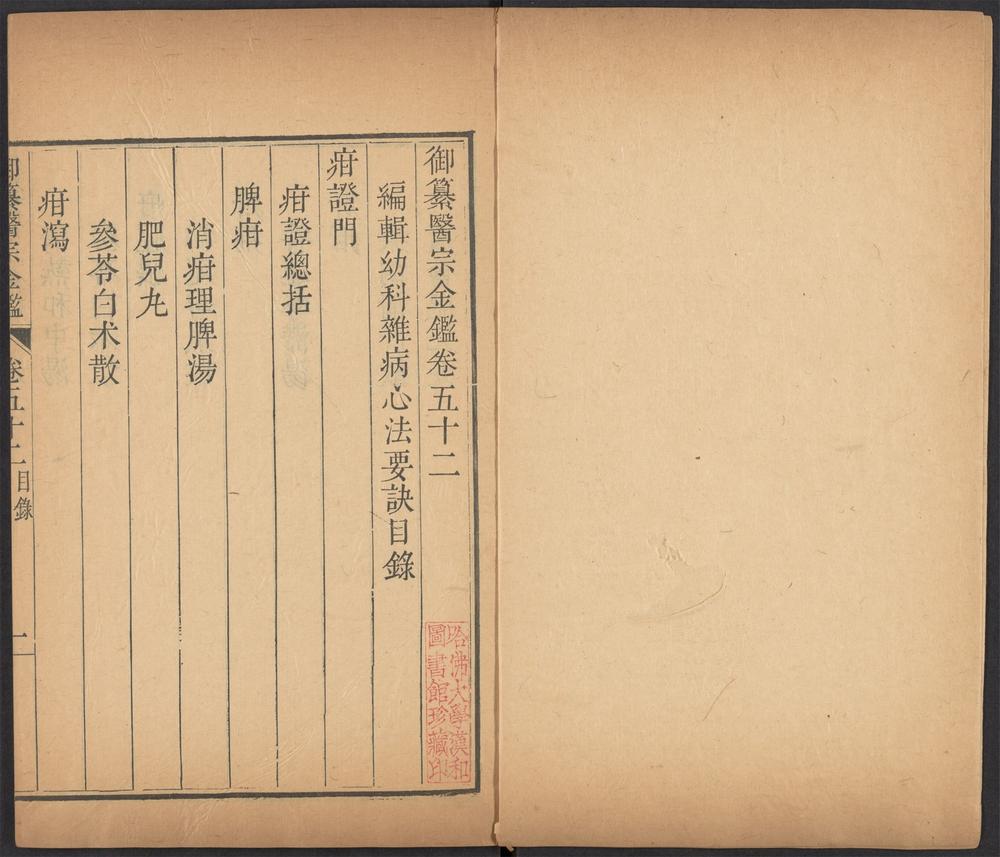 御纂醫宗金鑑卷五十二
編輯幼科雜病心法要訣目錄
疳證門
疳證總括
脾疳
消疳理脾湯
肥兒丸
參苓白术散
疳瀉
御纂醫宗金鑑
卷五十二目錄
一
哈佛大學漢和
圖書館珍藏印